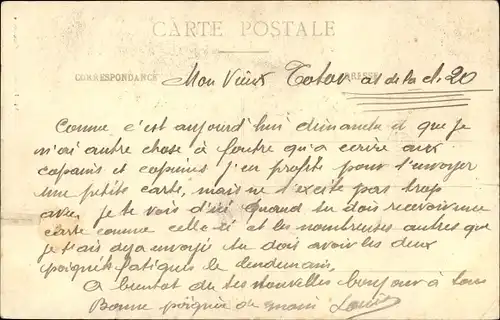 CARTE POSTALE
CORRESPONDANCE
Mon Vieux Totor as de la cl. 20
Comme c'est aujourd'hui dimanche et que je
n'ai autre chose à foutre qu'a ecrire aux
copains et copines j'en profite pour t'envoyer
une petite carte, mais ne t'excite pas trop
avec, je te vois d'ici quand tu dois recevoir une
carte comme celle-ci et les nombreuses autres que
je t'ais deja envoyé tu dois avoir les deux
poignets fatigués le lendemain.
A bientot de tes nouvelles bonjour à tous
Bonne poignée de main Louis